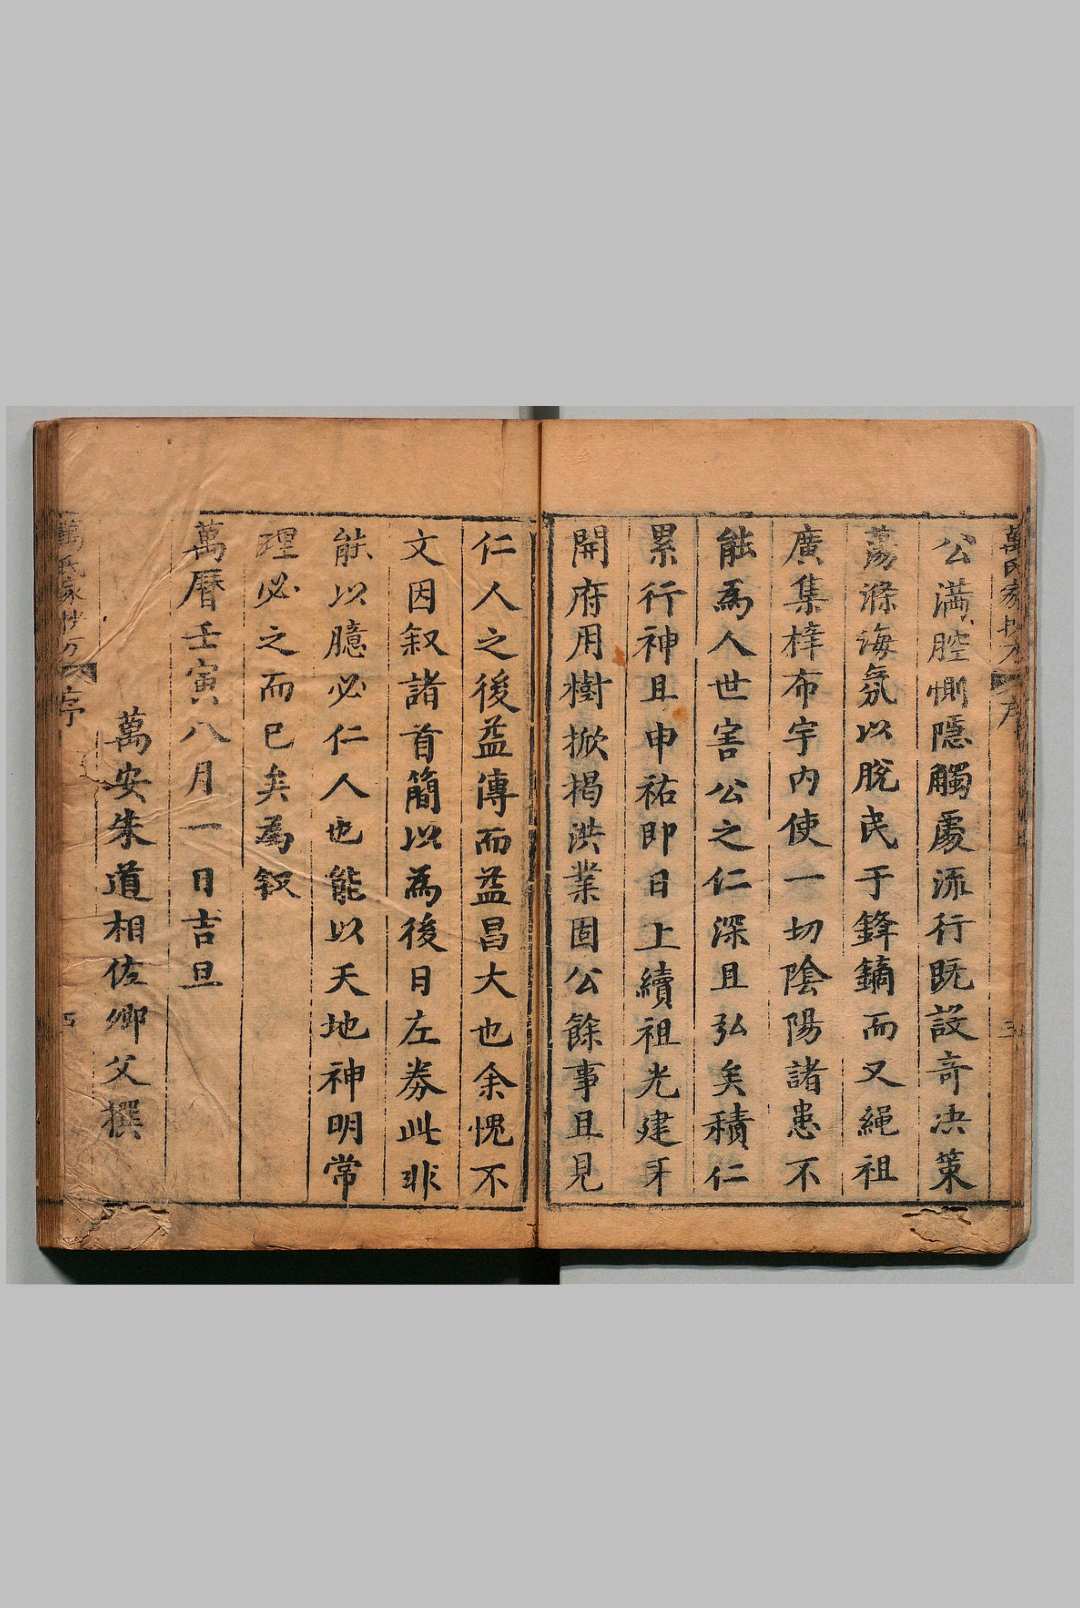 萬氏家抄方 序 三
公滿腔惻隱觸處流行既設奇決策
蕩滌海氛以脫民于鋒鏑而又繩祖
廣集梓布宇内使一切陰陽諸患不
能為人世害公之仁深且弘矣積仁
累行神且申祐即日上續祖光建牙
開府用樹掀揭洪業固公餘事且見
仁人之後益傳而益昌大也余愧不
文因叙諸首簡以為後日左券此非
能以臆必仁人也能以天地神明常
理必之而已矣為叙
萬曆壬寅八月一日吉旦
萬安朱道相佐卿父撰
萬氏家抄方 序